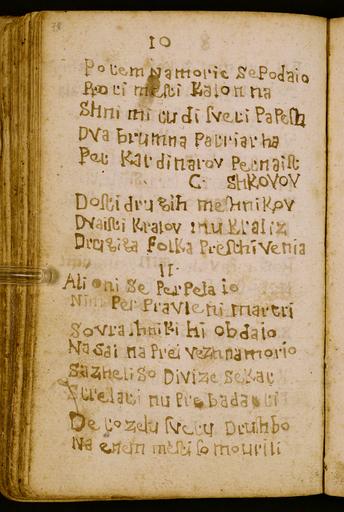 10
Potem Na morie Se Podaio
Proti mesti Kalonna
Shni mi tudi sveti Papesh
Dva brumna Patriarha
Pet Kardinarov Petnaist
C: SHKOVOV
Dosti drugih meshnikov
Dvaisti Kralov inu Kraliz
Drugiga folka Preschivenia
11.
Ali oni se PerPela io
Nim Per Pravleni martri
Sovrashniki hi obdaio
Na Sai na Prei vezhnamorio
Sazheli So Divize Sekat
Strelati inu Prebadati
De to zelu svetu Druhbo
Na enem mesti so mourili